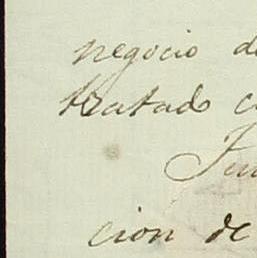 negocio de
tratado c
cion de